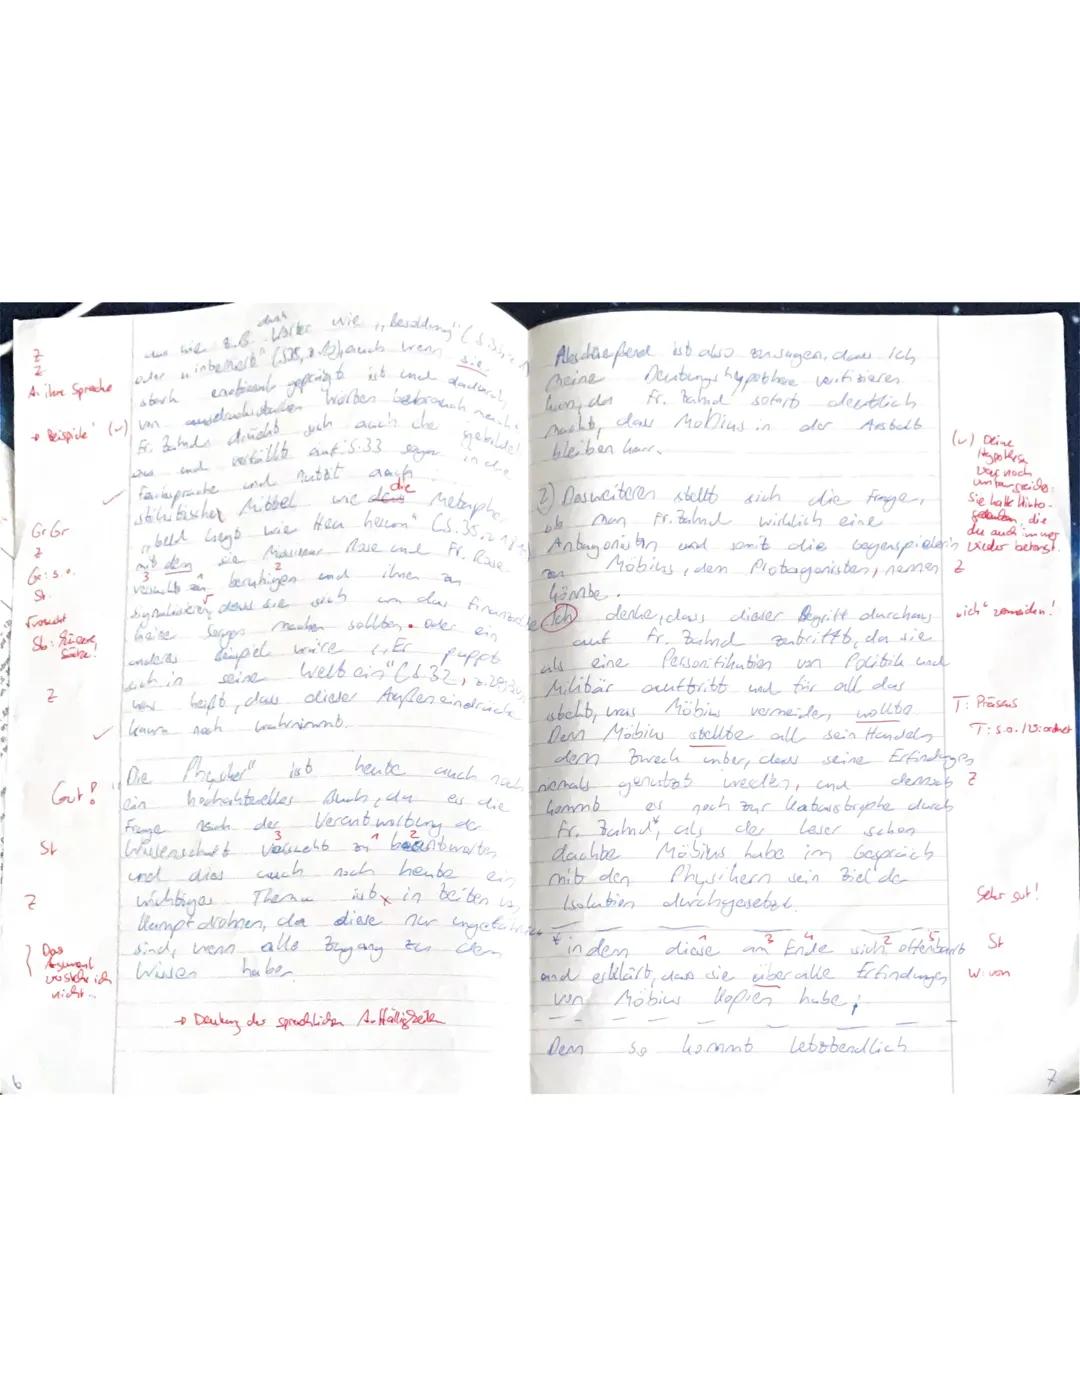 Z
Z
A: ihre Sprache
→ Beispiele (✓)
Gr Gr
Z
Gr: s.o.
St
versucht
Sb: kürzere Sätze!
Z
Gut!
St
Z
} Das Argument verstehe ich nicht...
das
wie z.B. Wörter wie „Besoldung" (S.
oder (S35, auch wenn sie
stark emotional geprägt ist und dadurch
von Worten Gebrauch macht.
Fr. Zahnd drückt sich auch eher gebildet
aus und verfällt auf S.33 sogar in die
Fachsprache und nutzt auch
die
stilistischer Mittel wie dem Metapher
„bald liegt wie Heu herum" (S.35, z.
mit den sie Missionar Rose und Fr. Rose
3 2
versucht zu beruhigen und ihnen zu
signalisieren, dass sie sich um das Finanzielle
keine Sorgen machen sollten. oder ein
anderes Beispiel wäre „Er puppt
sich in seine Welt ein" (S.32,
heißt, dass dieser Außeneindrücke
kaum noch wahrnimmt.
„Die Physiker" ist heute auch noch
ein hochaktuelles Buch, da es die
Frage nach der Verantwortung der
3 1 2
Wissenschaft versucht zu beantworten
und dies auch noch heute ein
wichtiges Thema ist, in Zeiten von
Kampfdrohnen, da diese nur ungefährlich
sind, wenn alle Zugang zu dem
Wissen haben
→ Deutung der sprachlichen Auffälligkeiten
6
Abschließend ist also zu sagen, dass ich
meine Deutungshypothese verifizieren
kann, da Fr. Zahnd sofort deutlich
macht, dass Möbius in der Anstalt
bleiben kann.
(✓) Deine Hypothese war noch umfangreicher: Sie hatte Hintergedanken, die du auch immer wieder betonst.
2) Desweiteren stellt sich die Frage,
ob man Fr. Zahnd wirklich eine
Antagonistin und somit die Gegenspielerin
zu Möbius, dem Protagonisten, nennen Z
könnte.
Ich denke, dass dieser Begriff durchaus „ich" vermeiden!
auf Fr. Zahnd zutrifft, da sie
als eine Personifikation von Politik und
Militär auftritt und für all das
steht, was Möbius vermeiden, wollte. T: Präsens
Denn Möbius stellte all sein Handeln T: s.o./W: ordnet
dem Zweck unter, dass seine Erfindungen
niemals genutzt werden, und dennoch Z
kommt es noch zur Katastrophe durch
Fr. Zahnd*, als der Leser schon
dachte Möbius habe im Gespräch
mit den Physikern sein Ziel der
Isolation durchgesetzt. Sehr gut!
1 3 4 2 5
* indem diese am Ende sich offenbart St
und erklärt, dass sie über alle Erfindungen W: von
von Möbius Kopien habe;
Denn so kommt letztendlich
7